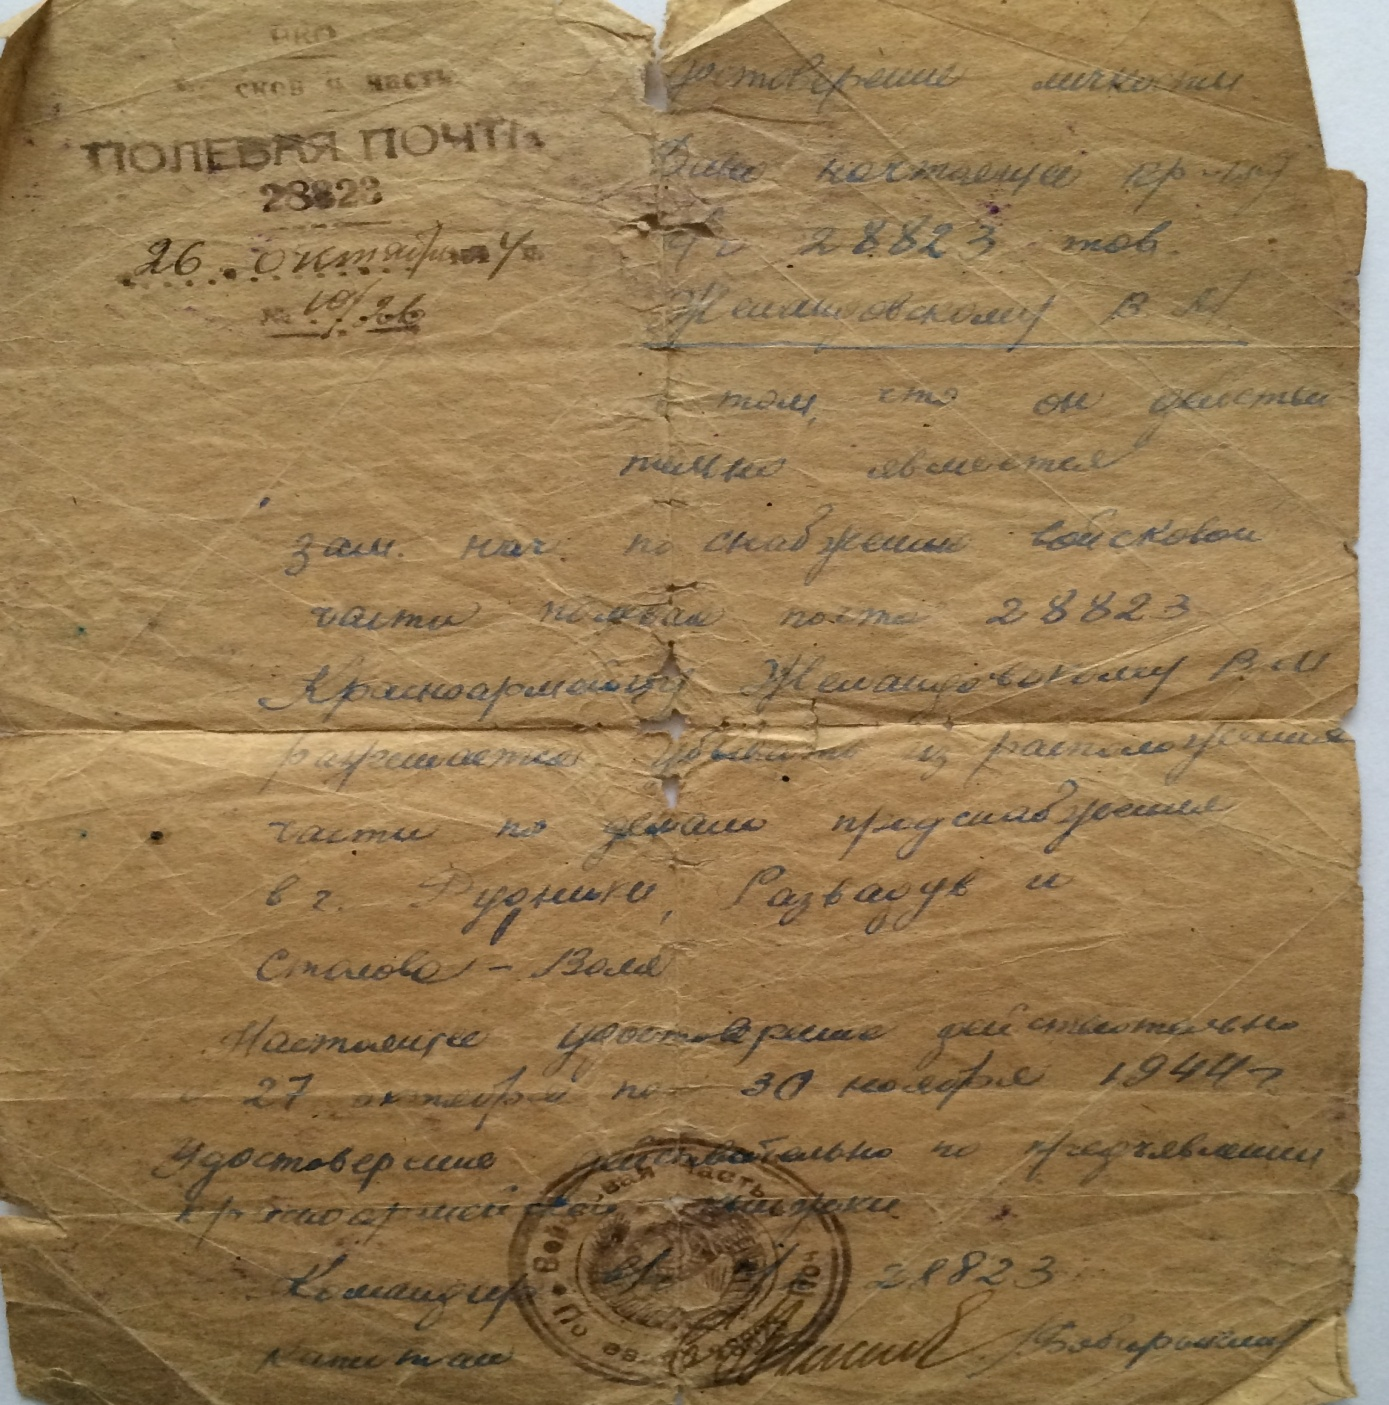 НКО
ская часть
ПОЛЕВАЯ ПОЧТА
28823
26 октября 4
№ 10/
Удостоверение личности
Дано
28823 тов.
В М.
о том, что он действи-
тельно является
зам. нач. по снабжению войсковой
части полевая почта 28823
Красноармейцу В. М
разрешается убывать из расположения
части по делам продснабжения
в г. Рудники, Развадув и
Сталова – Воля
Настоящее удостоверение действительно
с 27 октября по 30 ноября 1944 г
Удостоверение действительно по предъявлении
красноармейской книжки
Командир в/ч п/п 28823
капитан
Войсковая часть